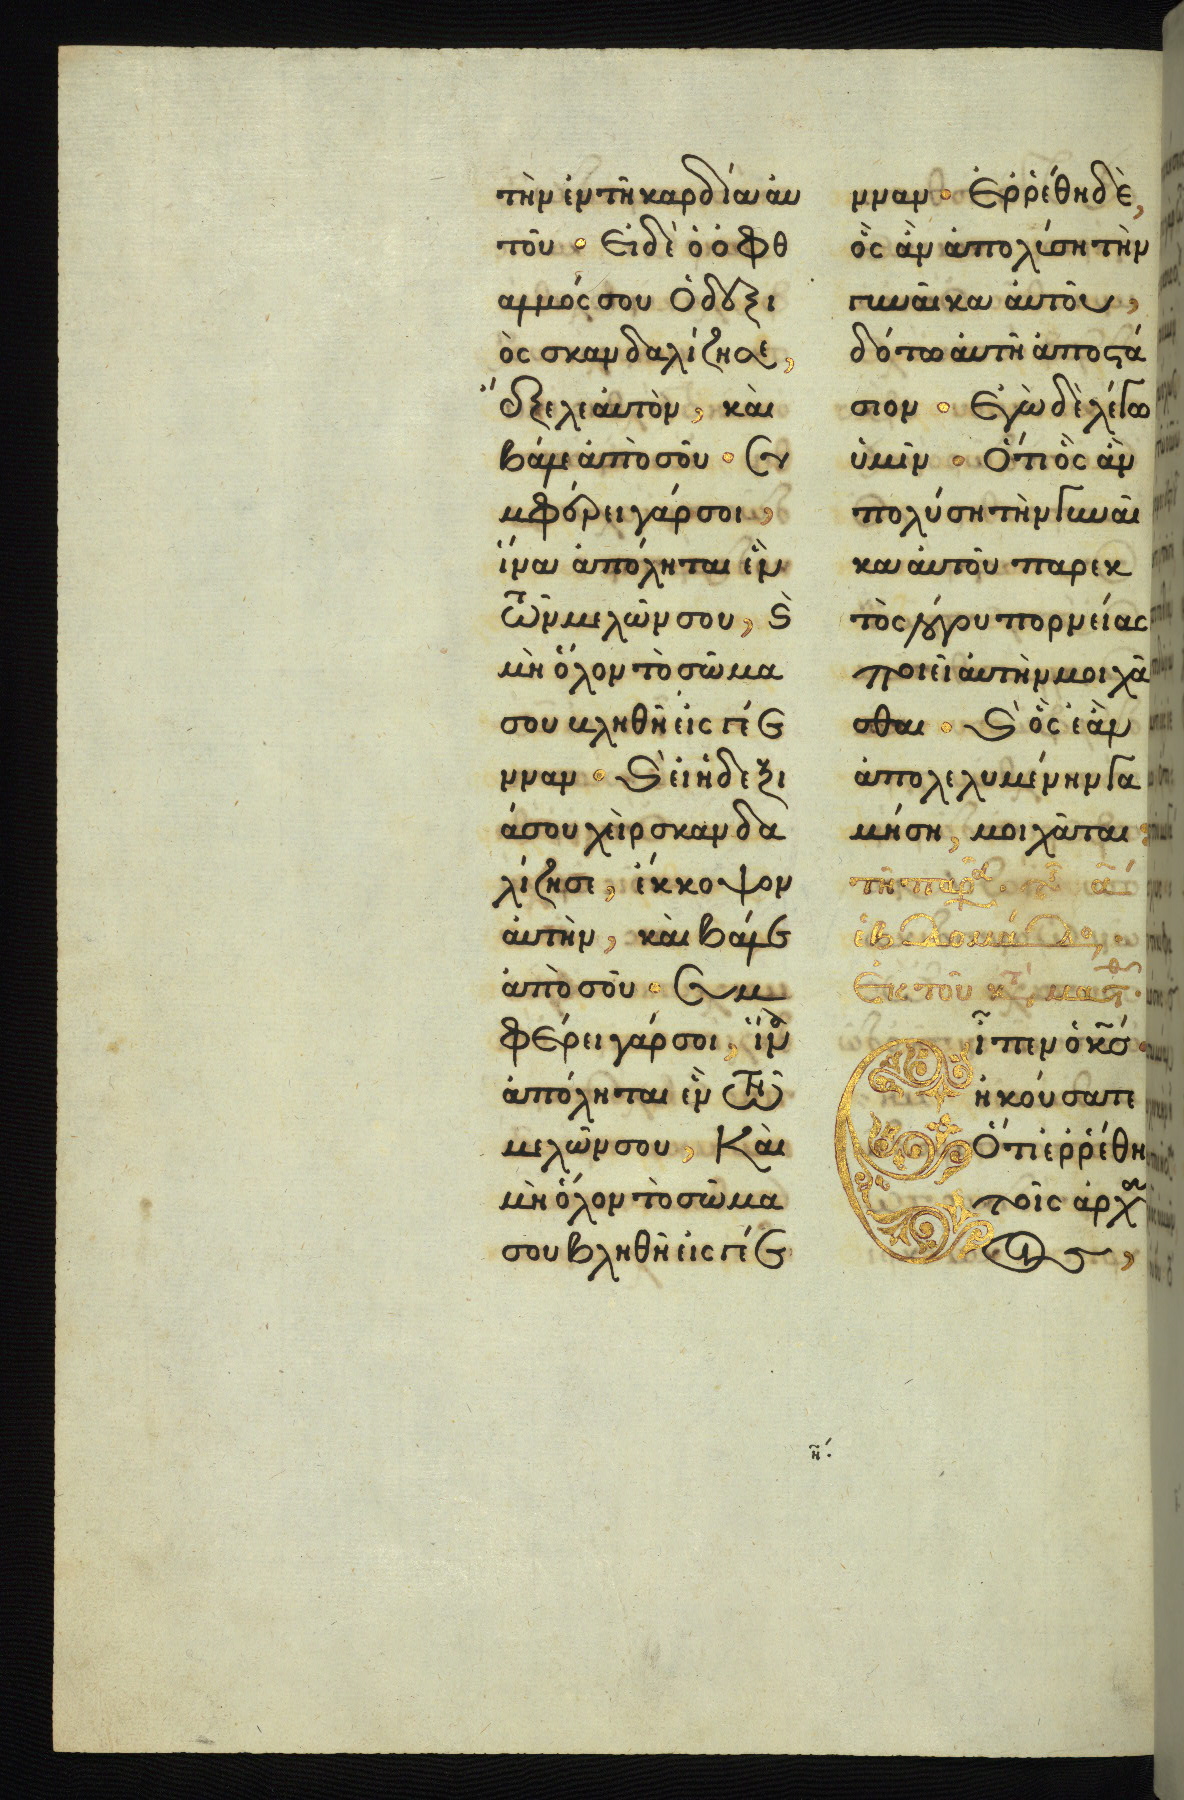 τὴν ἐν τῆ καρδίαι ἀυ
τοῦ · Εἰ δὲ ὁ ὀφθ
αλμός σου ὁ δεξι
ὸς σκανδαλίζησε,
ἔξελε ἀυτὸν, κὰι
βάλε ἀπὸ σοῦ · Συ
μφέρει γάρ σοι,
ἵνα ἀπόληται ἓν
τῶν μελῶν σου, ϗ
μὴ ὅλον τὸ σῶμα
σου βληθῆ εἰς γέε
νναν · ϗ εἰ ἡ δεξι
ά σου χὲιρ σκανδα
λίζησε, ἔκκοψον
ἀυτὴν, κὰι βάλε
ἀπὸ σοῦ · Συμ
φέρει γάρ σοι, ἵνα
ἀπόληται ἓν τῶν
μελῶν σου, Κὰι
μὴ ὅλον τὸ σῶμα
σου βληθῆ εἰς γέε
νναν · Ἐῤῥέθη δὲ,
ὃς ἂν ἀπολύση τὴν
γυναῖκα ἀυτοῦ,
δότω ἀυτῆ ἀποστά
σιον · Ἐγὼ δὲ λέγω
ὑμῖν · Ὅτι ὃς ἂν
πολύση τὴν γυναῖ
κα ἀυτοῦ παρεκ
τὸς λόγου πορνείας
ποιεῖ ἀυτὴν μοιχᾶ
σθαι · ϗ ὃς ἐὰν
ἀπολελυμένην γα
μήση, μοιχᾶται
τῆ παρ · τ α
ἑβδομάδ,
Ἐκ τοῦ κτ, ματθ ·
Εἶπεν ὁ κς ·
ἠκούσατε
Ὅτι ἐῤῥέθη
τοῖς ἀρχαί
οις,
η